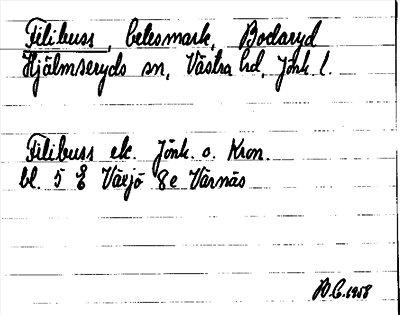 Filibuss, betesmark, Bodaryd
Hjälmseryds sn, Västra hd, Jönk. l.
Filibuss ek. Jönk. o. Kron.
bl. 5 E Växjö 8e Värnäs
1958